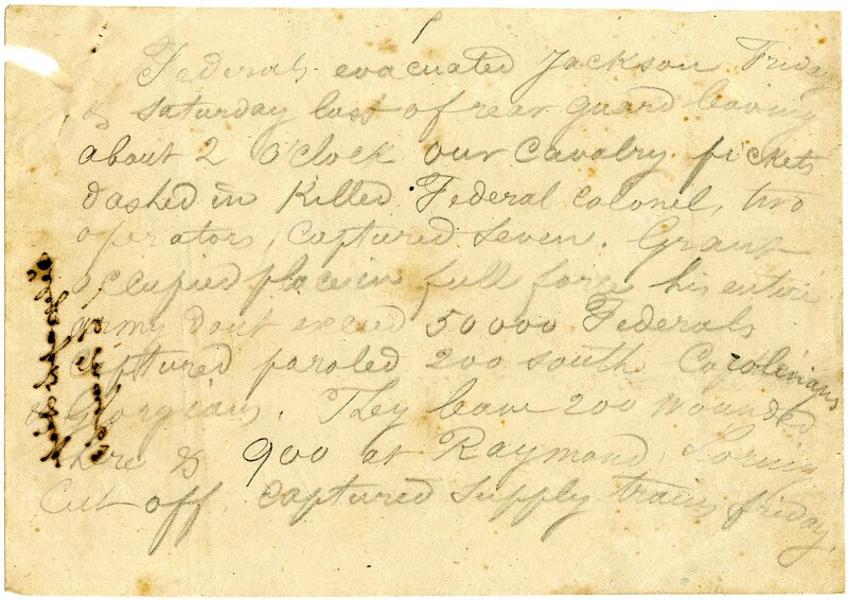 Federals evacuated Jackson Friday
& Saturday last of rear guard leaving
about 2 O'Clock our Cavalry pickets
dashed in Killed Federal Colonel, two
operators, Captured Seven. Grant
occupied place in full force his entire
army dont exceed 50000 Federals
Captured paroled 200 South Carolinians
& Georgians. They leave 200 wounded
here & 900 at Raymond, Loring
Cut off, Captured Supply train friday.